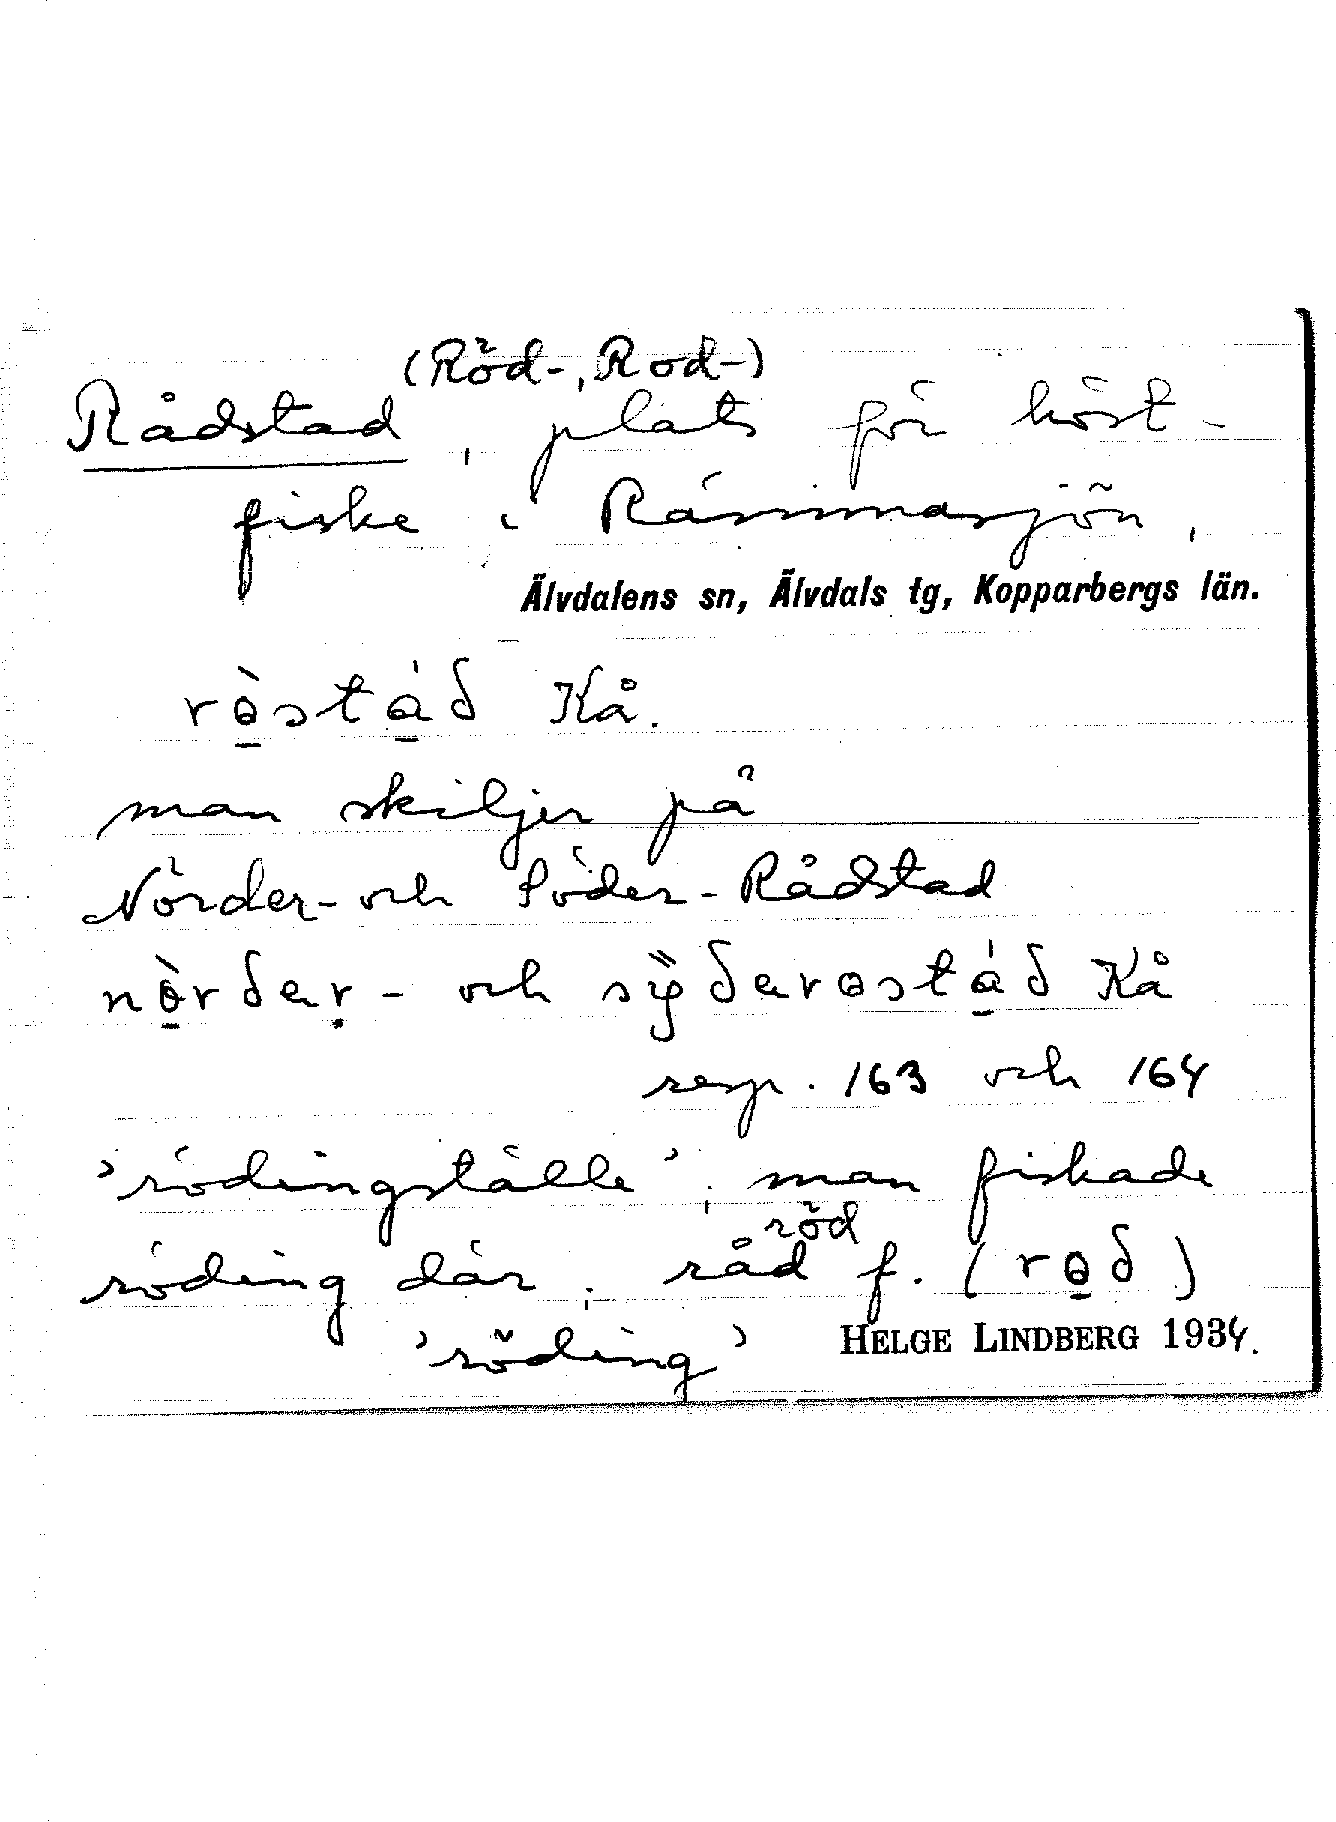 (Röd-, Rod-)
Rådstad, plats för höst-
fiske i Rämmasjön,
Älvdalens sn, Älvdals tg, Kopparbergs län.
Kå.
man skiljer på
Nörder- och Söder-Rådstad
och Kå
resp. 163 och 164
'rödingställe', man fiskade
röd
röding där; råd f. (rɵd)
'röding' HELGE LINDBERG 1934.